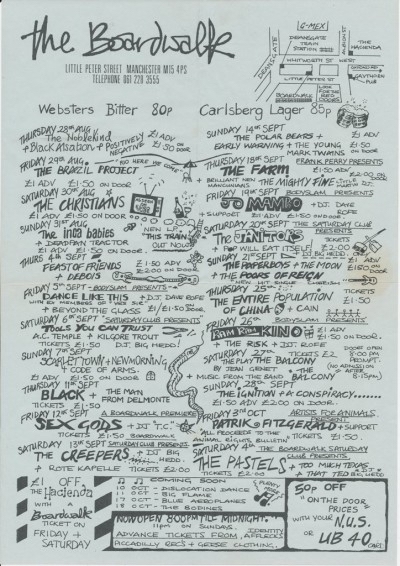 the Boardwalk
LITTLE PETER STREET MANCHESTER M15 4PS
TELEPHONE 061 228 3555
G-MEX
DEANSGATE
DEANSGATE
TRAIN
STATION
ALBION ST
THE
HACIENDA
WHITWORTH ST WEST
LITTLE PETER ST
GAYTHORN
PUB
BOARDWALK
LOOK FOR THE
RED
DOORS
Websters Bitter 80p
Carlsberg Lager 85p
THURSDAY 28TH AUG
The Noble Kind
+ Black Alsatian + POSITIVELY
NEGATIVE
£1 ADV
£1·50 ON
DOOR
FRIDAY 29TH AUG.
THE BRAZIL PROJECT
£1 ADV £1·50 ON DOOR
SATURDAY 30TH AUG
THE CHRISTIANS
£1 ADV £1·50 ON DOOR
SUNDAY 31ST AUG
The inca babies
+ DEADPAN TRACTOR
£1 ADV £1·50 ON DOOR.
NEW L.P.
"THIS TRAIN"
OUT NOW!
THURS 4TH SEPT
FEAST OF FRIENDS
+ DEBRIS
£1·50 ADV
£2·00 ON DOOR
FRIDAY 5TH SEPT - BODYSLAM PRESENTS
DANCE LIKE THIS + D.J. DAVE ROFE
+ BEYOND THE GLASS £1/£1·50 ON DOOR
SATURDAY 6TH SEPT "SATURDAY CLUB PRESENTS"
TOOLS YOU CAN TRUST
A.C. TEMPLE + KILGORE TROUT
TICKETS £1·50 D.J. BIG HEDD!
SUNDAY 7TH SEPT
SCARLET TOWN + NEW MORNING
+ CODE OF ARMS.
£1 ADV £1·50 ON DOOR!
THURSDAY 11TH SEPT
BLACK + THE MAN
FROM DELMONTE
TICKETS £1·50
FRIDAY 12TH SEPT A BOARDWALK PREMIERE
SEX GODS + D.J. "T.C."
TICKETS £1·50 BOARDWALK
SATURDAY 13TH SEPT SATURDAY CLUB PRESENTS
THE CREEPERS + D.J. BIG
HEDD
+ ROTE KAPELLE TICKETS £2·00
SUNDAY 14TH SEPT
THE POLAR BEARS +
EARLY WARNING + THE YOUNG
MARK TWAINS
£1 ADV
£1·50 ON DOOR
THURSDAY 18TH SEPT FRANK PERRY PRESENTS
THE FARM
£1·50 ADV
£2·00 ON
DOOR
+ BRILLIANT NEW
MANCUNIANS
THE MIGHTY FINE
FRIDAY 19TH SEPT BODYSLAM PRESENTS
JO MAMBO + D.J. DAVE
ROFE
+ SUPPORT £1 ADV £1·50 ON DOOR
SATURDAY 20TH SEPT THE SATURDAY CLUB
PRESENTS
THE JANITORS
+ POP WILL EAT ITSELF
TICKETS
£2·00
+ D.J. BIG HEDD
SUNDAY 21ST SEPT
THE PAPER BOYS + THE MOON
+ THE POOLS OF REIGN
£1 ADV
£1·50 ON DOOR
THURSDAY 25TH SEPT
THE ENTIRE POPULATION
OF CHINA + CAIN
TICKETS
£1·50
FRIDAY 26TH BODYSLAM PRESENTS
KINO
+ THE RISK + D.J. ROFE
£1 ADV
£1·50 ON
DOOR
SATURDAY 27TH
THE PLAY THE BALCONY
BY JEAN GENET
TICKETS £2
+ MUSIC FROM THE BAND THE BALCONY
DOOR OPEN
8·00 PM
PROMPT.
(NO ADMISSION
AFTER
8·15pm)
SUNDAY 28TH SEPT
THE IGNITION + A CONSPIRACY.......
£1·50 ADV £2·00 ON DOOR.
FRIDAY 3RD OCT ARTISTS FOR ANIMALS
PRESENT
PATRIK FITZGERALD + SUPPORT
"ALL PROCEEDS TO THE
ANIMAL RIGHTS BULLETIN"
TICKETS
£1·50.
SATURDAY 4TH THE BOARDWALK SATURDAY
CLUB PRESENTS.
THE PASTELS + TOO MUCH TEXAS
TICKETS £2·00
+ THAT TED BIG HEDD
£1 OFF
THE Hacienda
WITH
Boardwalk
TICKET ON
FRIDAY +
SATURDAY
COMING SOON
10 OCT - DISLOCATION DANCE
11 OCT - BIG FLAME
17 OCT - BLUE AEROPLANES
18 OCT - THE BODINES
NOW OPEN 8·00PM TILL MIDNIGHT.
11PM ON SUNDAYS.
ADVANCE TICKETS FROM
IDENTITY
AFFLECKS
PICCADILLY RECS + GEESE CLOTHING.
50p OFF
"ON THE DOOR
PRICES"
WITH YOUR N.U.S.
OR
UB 40 CARDS